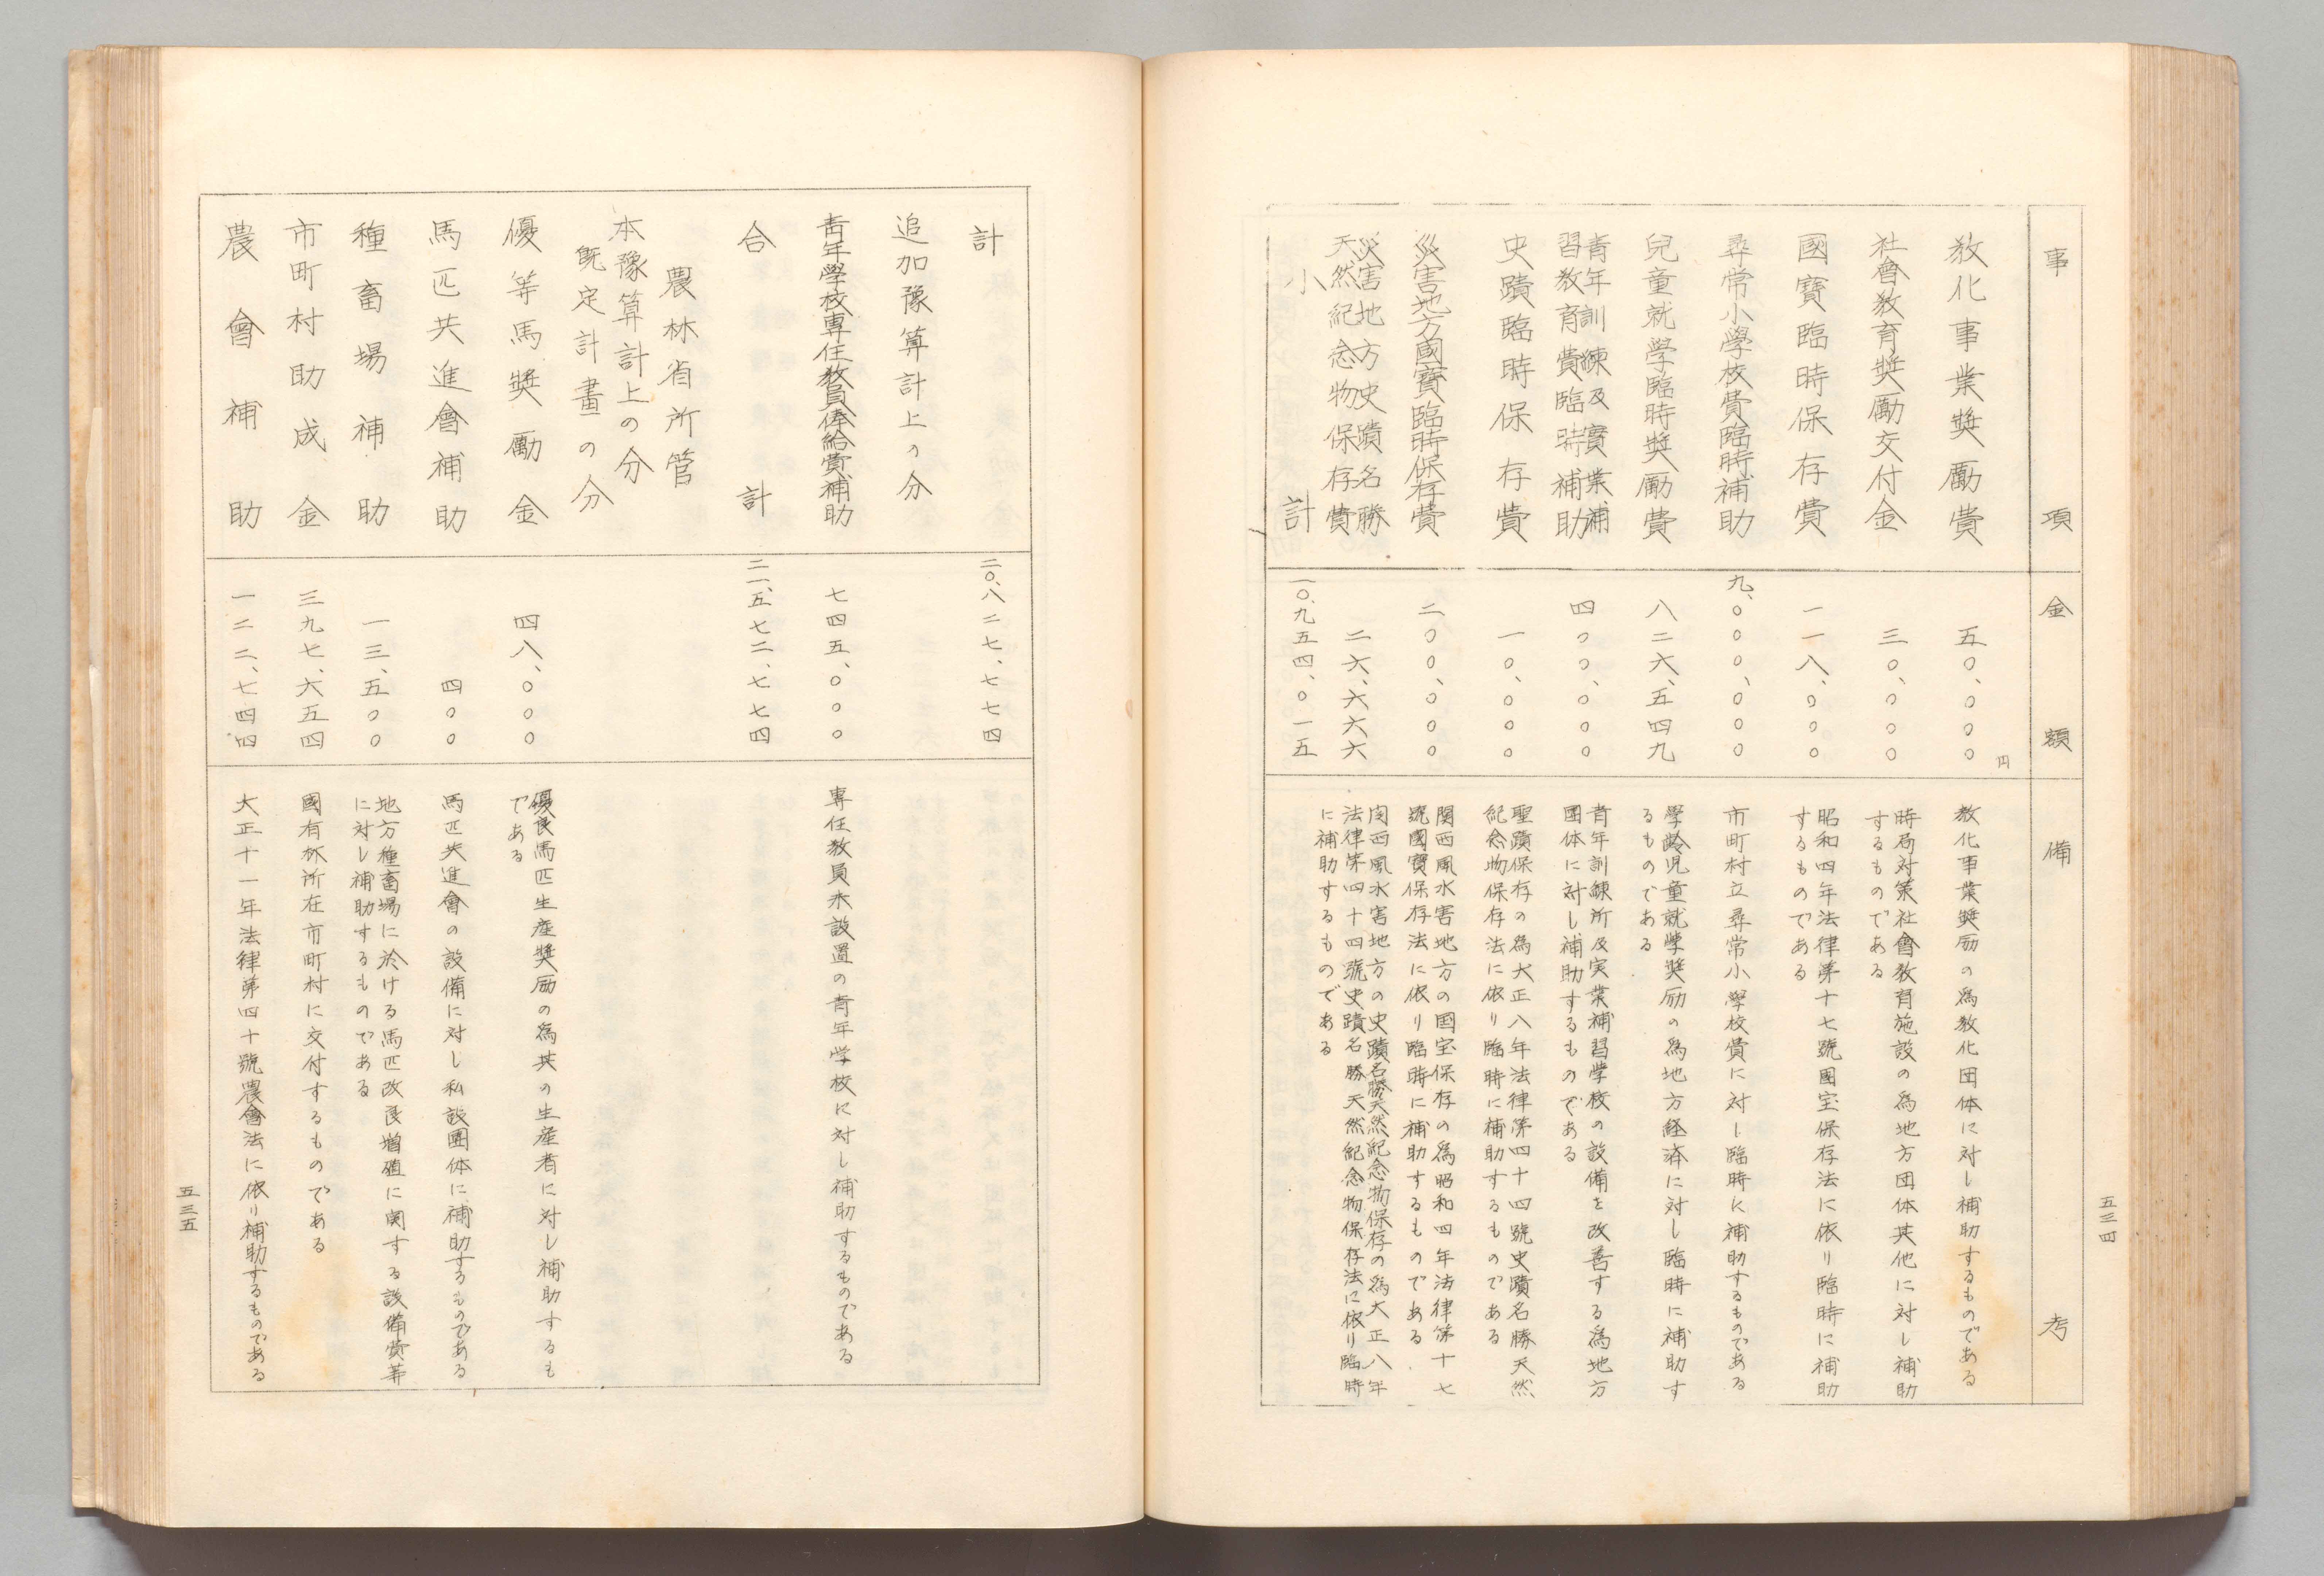 五三四
事項 金額 備考
教化事業奬勵費 五〇、〇〇〇円 教化事業奬励の爲教化団体に対し補助するものである
社會教育奬勵交付金 三〇、〇〇〇 時局対策社會教育施設の爲地方団体其他に対し補助
するものである
國寶臨時保存費 一一八、〇〇〇 昭和四年法律第十七號國宝保存法に依り臨時に補助
するものである
尋常小學校費臨時補助 九、〇〇〇、〇〇〇 市町村立尋常小學校費に対し臨時に補助するものである
兒童就学臨時奬勵費 八二六、五四九 学齢児童就学奬励の爲地方経済に対し臨時に補助す
るものである
青年訓練及實業補
習教育費臨時補助 四〇〇、〇〇〇 青年訓練所及実業補習学校の設備を改善する爲地方
團体に対し補助するものである
史蹟臨時保存費 一〇、〇〇〇 聖蹟保存の爲大正八年法律第四十四號史蹟名勝天然
紀念物保存法に依り臨時に補助するものである
災害地方國寶臨時保存費 二〇〇、〇〇〇 関西風水害地方の国宝保存の爲昭和四年法律第十七
號國寶保存法に依り臨時に補助するものである
災害地方史蹟名勝
天然紀念物保存費 二六、六六六 関西風水害地方の史蹟名勝天然紀念物保存の爲大正八年
法律第四十四號史蹟名勝天然紀念物保存法に依り臨時
に補助するものである
小計 一〇、九五四、〇一五
計 二〇、八二七、七七四
追加豫算計上の分
青年學校專任教員俸給費補助 七四五、〇〇〇 專任教員未設置の青年学校に対し補助するものである
合計 二一、五七二、七七四
農林省所管
本豫算計上の分
既定計畫の分
優等馬奬勵金 四八、〇〇〇 優良馬匹生産奬励の爲其の生産者に対し補助するも
である
馬匹共進會補助 四〇〇 馬匹共進會の設備に対し私設團体に補助するものである
種畜場補助 一三、五〇〇 地方種畜場に於ける馬匹改良増殖に関する設備費等
に対し補助するものである
市町村助成金 三九七、六五四 國有林所在市町村に交付するものである
農會補助 一二二、七四四 大正十一年法律第四十號農會法に依り補助するものである
五三五